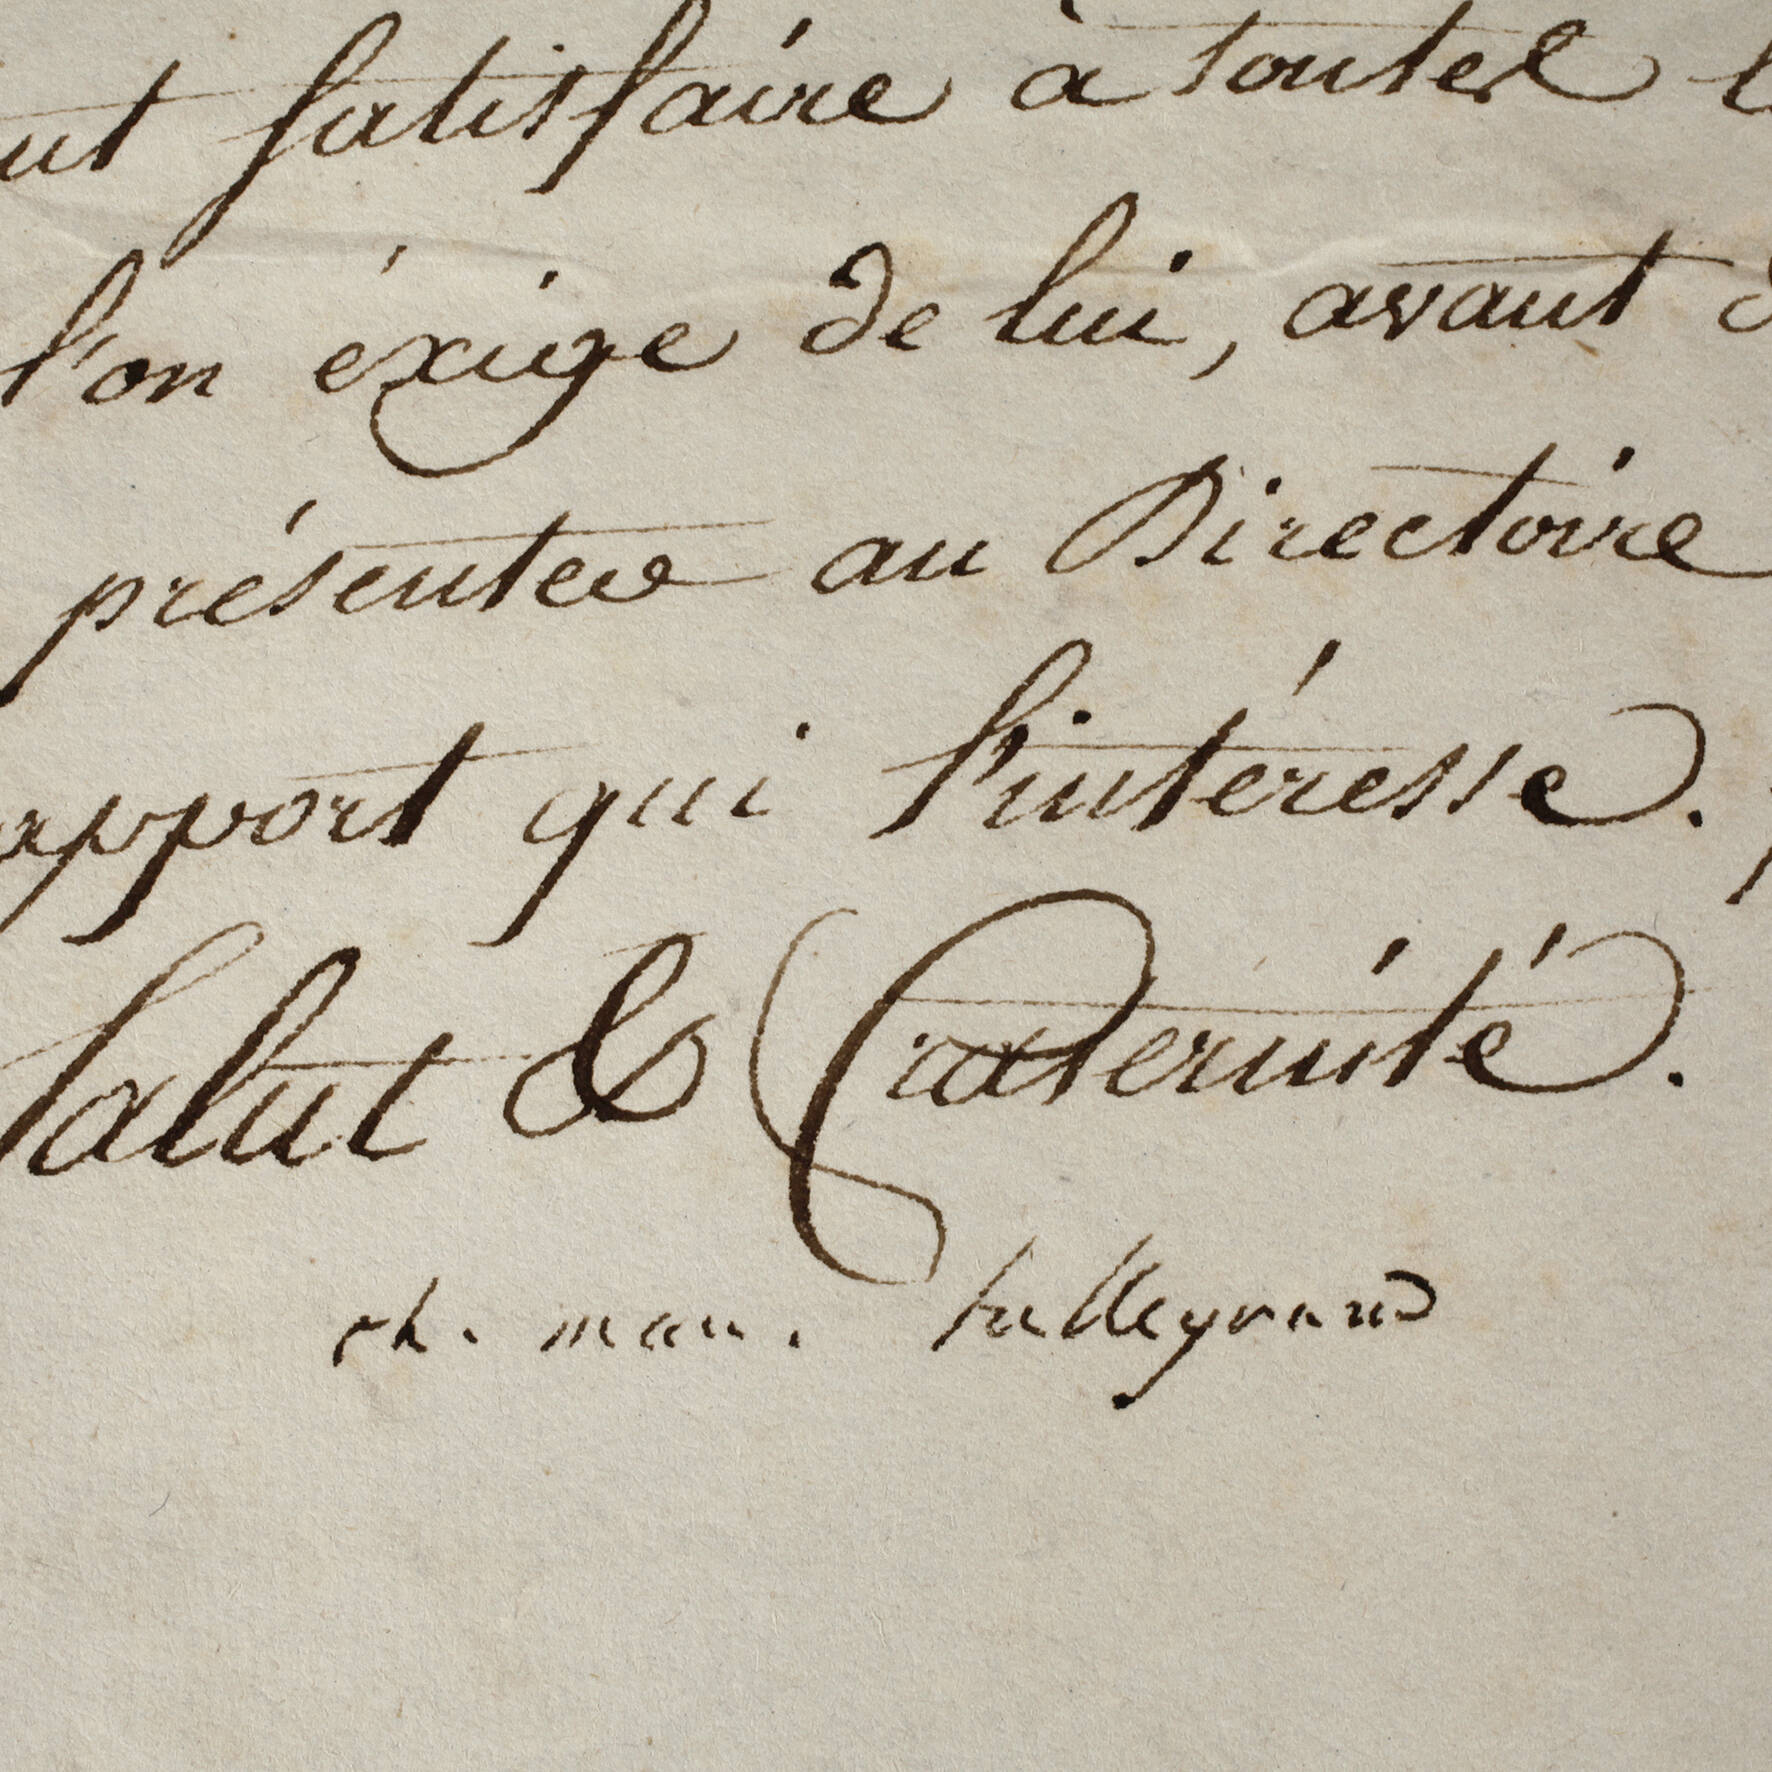 ut satisfaire à toutes
l'on éxige de lui, avant
présenter au Directoire
apport qui l'intéresse.
Salut & Fraternité.
ch. mau. talleyrand